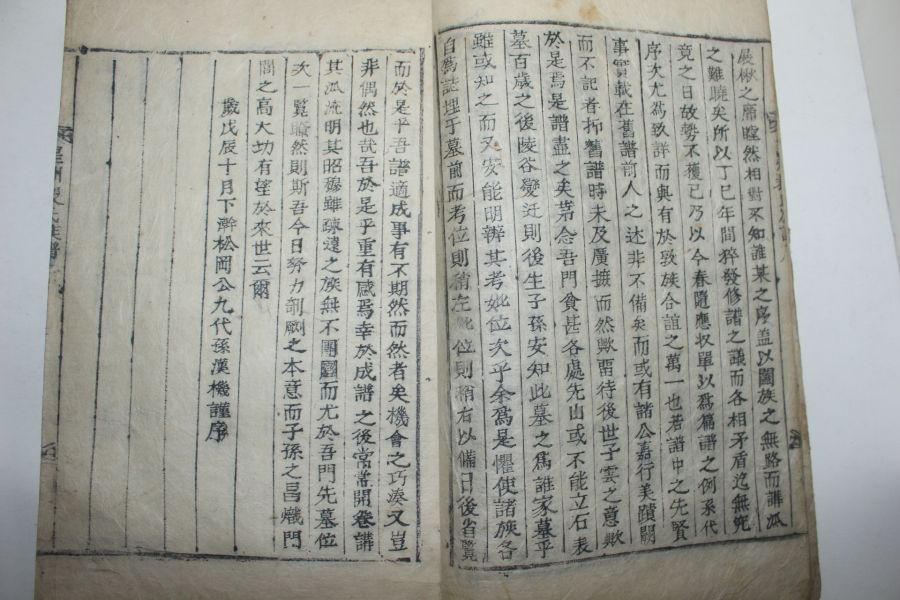 展楸之席瞠然相對不知誰某之序盖以圖族之無路而譁派
之難曉矣所以丁巳年間猝發修譜之議而各相矛盾迄無究
竟之日故勢不獲已乃以今春隨應收單以爲篇譜之例系代
序次尤爲致詳而與有於敦族合誼之萬一也若譜中之先賢
事實載在舊譜前人之述非不備矣而或有諸公嘉行美蹟闕
而不記者抑舊譜時未及廣摭而然歟留待後世子雲之意歟
於是焉是譜盡之矣苐念吾門貧甚各處先山或不能立石表
墓百歲之後陵谷變迁則後生子孫安知此墓之爲誰家墓乎
雖或知之而又安能明辨其考妣位次乎余爲是懼使諸族各
自爲誌埋于墓前而考位則稍左妣位則稍右以備日後省覽
而於是乎吾譜適成事有不期然而然者矣機會之巧湊又豈
非偶然也哉吾於是乎重有感焉幸於成譜之後常常開卷講
其派流明其昭穆雖疎遠之族無不團圝而尤於吾門先墓位
次一覧瞭然則斯吾今日努力剞劂之本意而子孫之昌熾門
閭之高大切有望於來世云爾
歲戊辰十月下澣松岡公九代孫漢機謹序
氏族譜